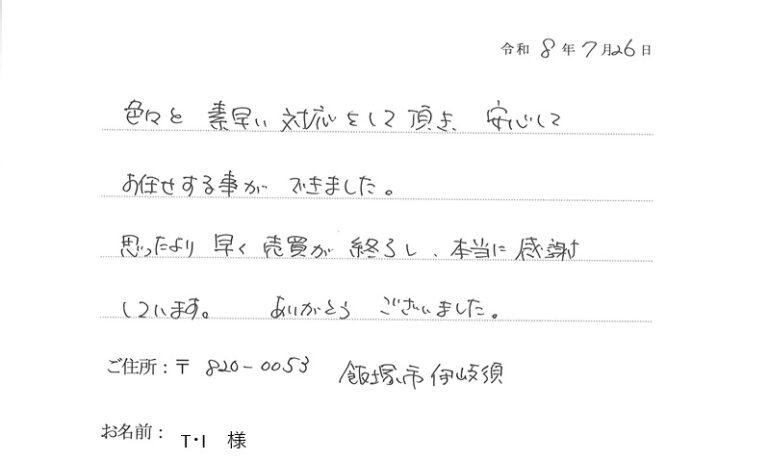 令和 8 年 7 月26 日
色々と 素早い 対応をして頂き、安心して
お任せする事が できました。
思ったより 早く 売買が 終了し、本当に 感謝
しています。 ありがとう ございました。
ご住所：〒 820-0053 飯塚市伊岐須
お名前： T・I 様